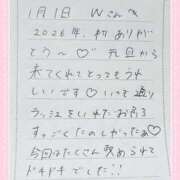 1月1日 Wさんへ
2026年、初ありが
とう〜♡ 元旦から
来てくれてとってもうれ
しいです♡いつも通り
ラッシュをいれたお兄さ
すっごくたのしかったぁ♡
今回はたくさん攻められて
ドキドキでした!!